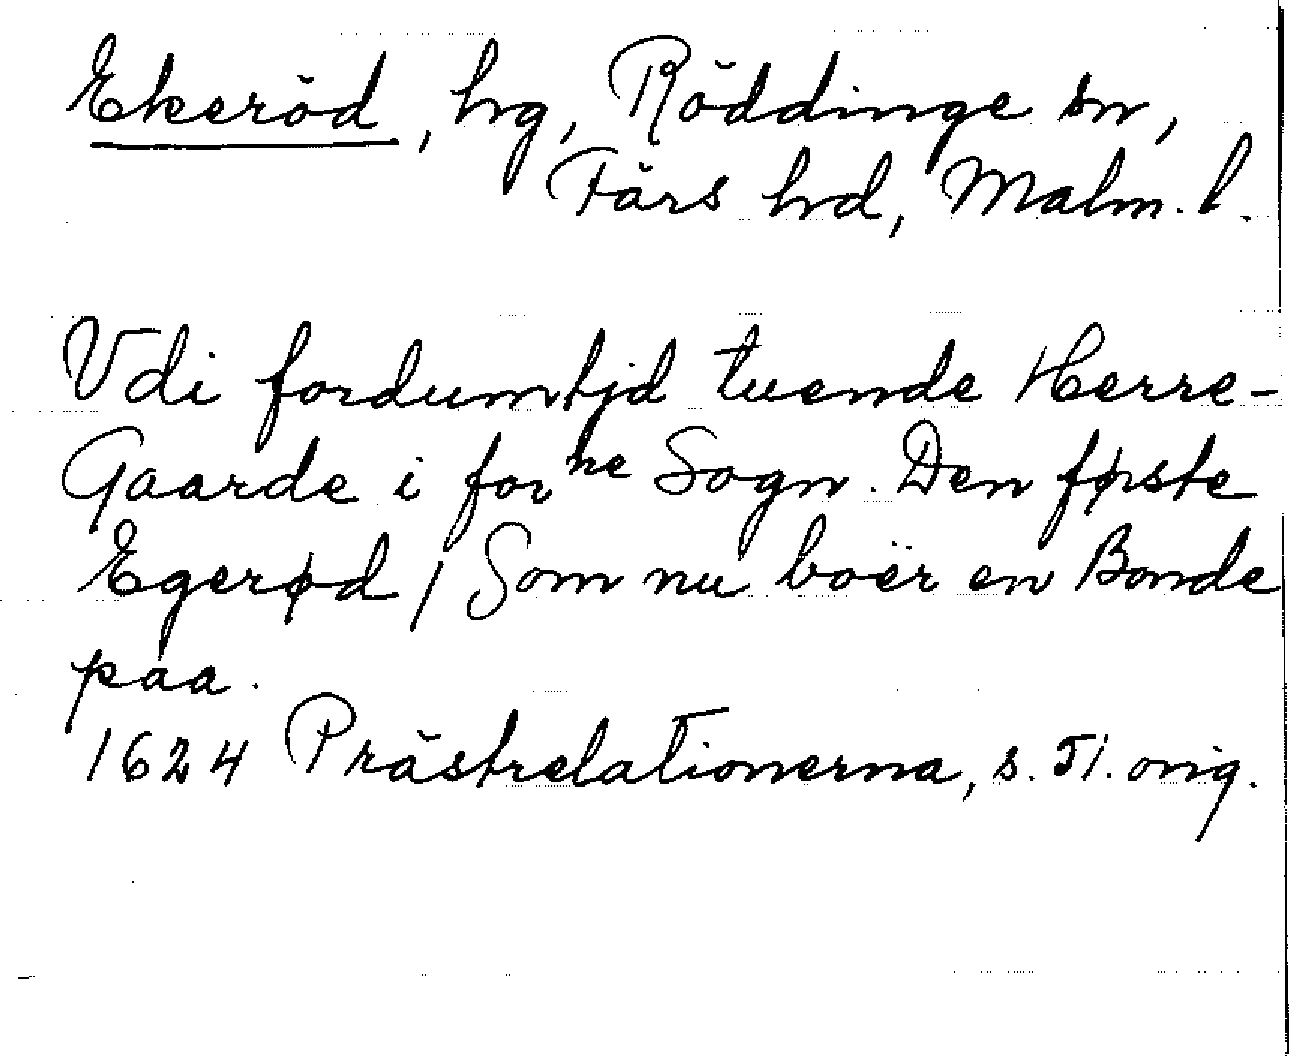 Ekeröd, hrg, Röddinge sn,
Färs hrd, Malm. l.
Vdi fordumtjd tuende Herre-
Gaarde i forne Sogn. Den første
Egerød / Som nu boër en Bonde
paa.
1624 Prästrelationerna, s. 51. orig.